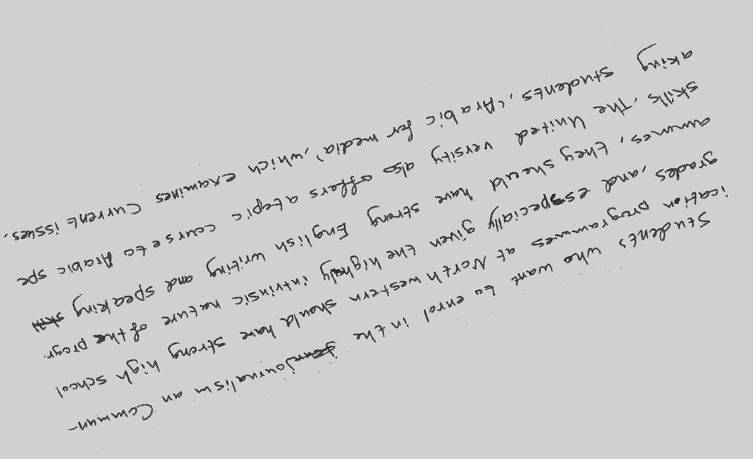 Students who want to enrol in the journalism an Commun-
ication programmes at North western should have strong high school
grades, and especially given the highly intrinsic nature of the progr.
ammes, they should have strong English writing and speaking
skills. The United versity also offers a topic course to Arabic spe
aking students, 'Arabic for media', which examines current issues.